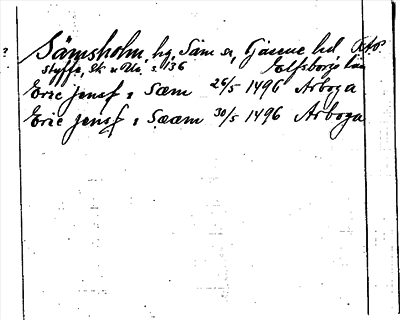 ? Sämsholm, hg, Säm sn, Gäsene hd, RAP.
Styffe, Sk u Un. s. 136 Elfsborgs län
Eric Jenss i Sæm 26/5 1496 Arboga
Eric Jenss i Sææm 30/5 1496 Arboga